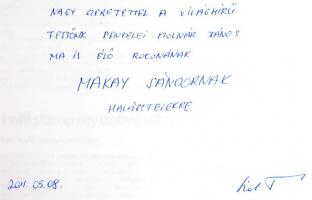 NAGY SZERETETTEL A VILÁGHÍRŰ
FESTŐNK PENTELEI-MOLNÁR JÁNOS
MA IS ÉLŐ ROKONÁNAK
MAKAY SÁNDORNAK
HALÁSZTELEKRE
2011. 05. 08.